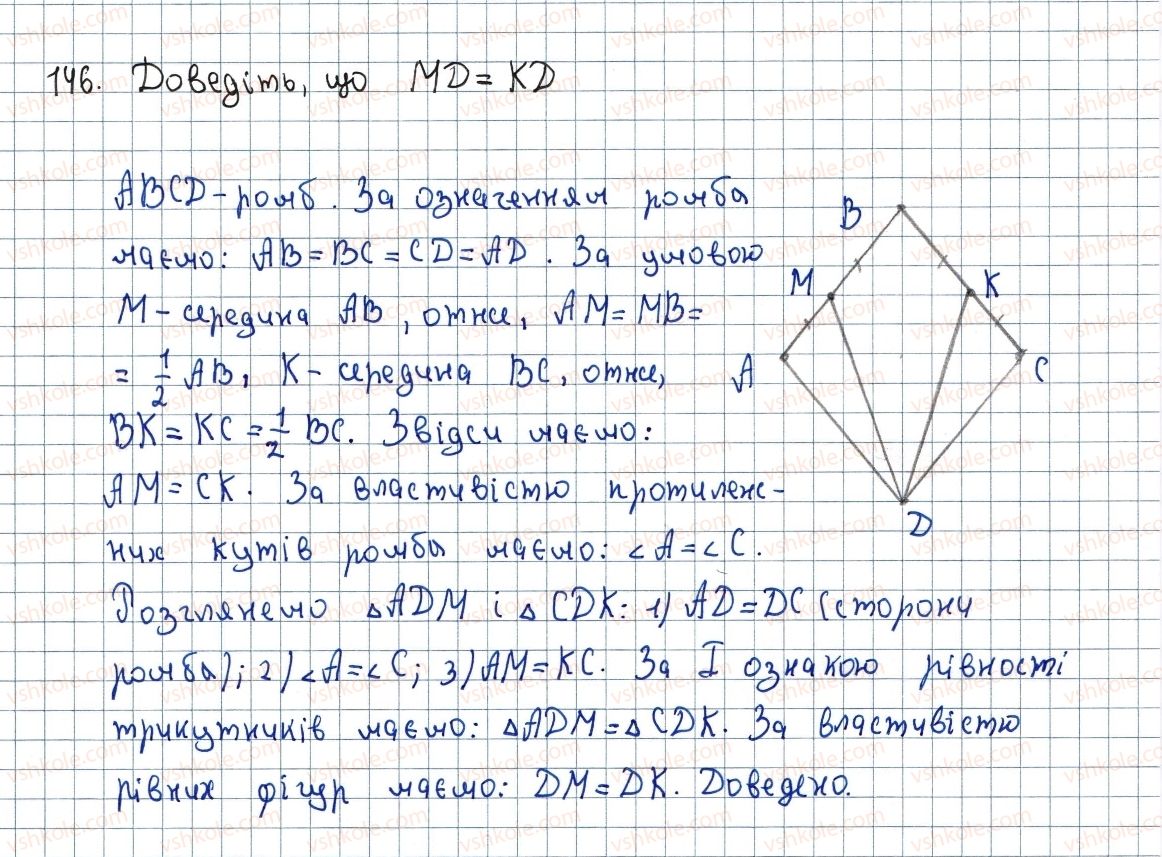 146. Доведіть, що MD = KD
ABCD - ромб. За означенням ромба
маємо: AB = BC = CD = AD. За умовою
M - середина AB, отже, AM = MB =
= 1/2 AB, K - середина BC, отже,
BK = KC = 1/2 BC. Звідси маємо:
AM = CK. За властивістю протилеж-
них кутів ромба маємо: ∠A = ∠C.
Розглянемо △ADM і △CDK: 1) AD = DC (сторони
ромба); 2) ∠A = ∠C; 3) AM = KC. За I ознакою рівності
трикутників маємо: △ADM = △CDK. За властивістю
рівних фігур маємо: DM = DK. Доведено.
B
M
K
A
C
D
vshkole.com